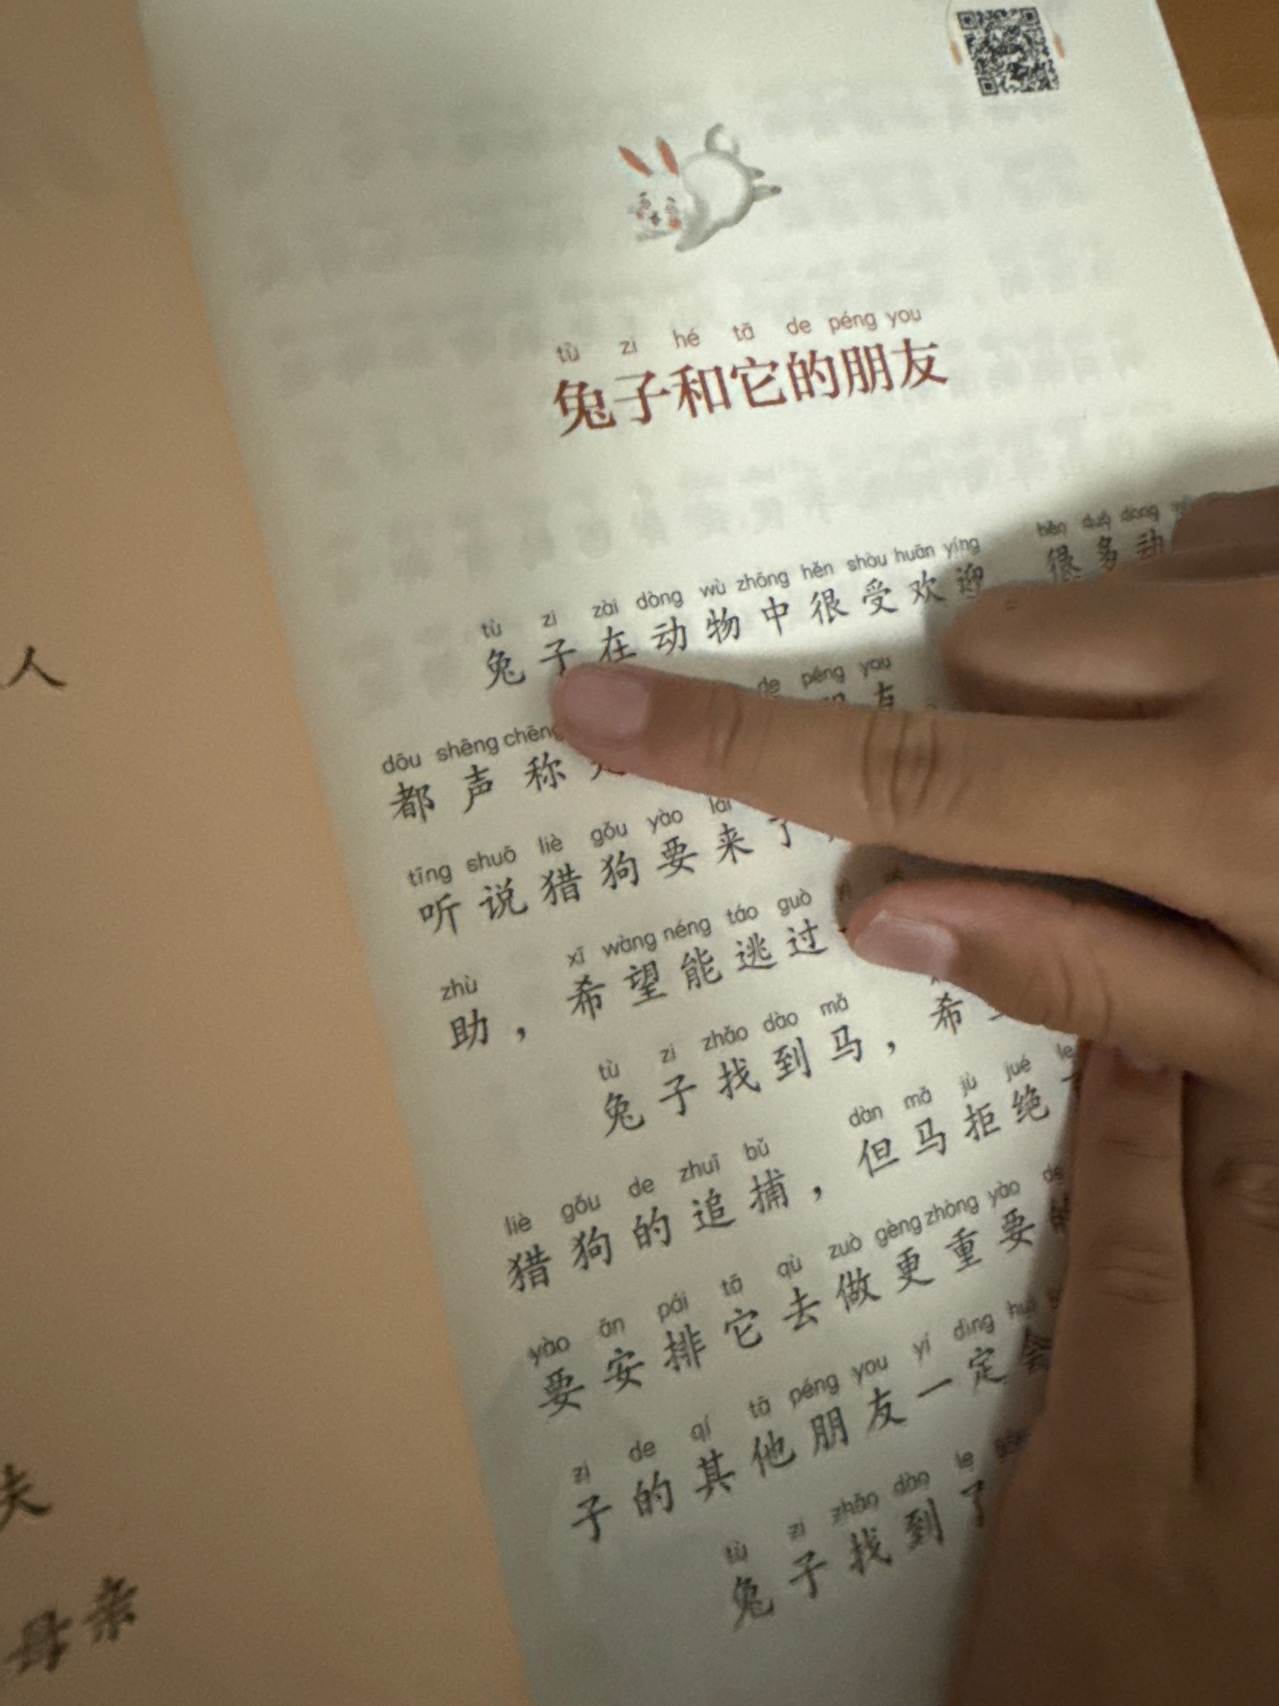 tù zi hé tā de péng you
兔子和它的朋友
tù zi zài dòng wù zhōng hěn shòu huān yíng hěn duō dòng
兔子在动物中很受欢迎 很多动
de péng you
友
dōu shēng chēng
都声称
tīng shuō liè gǒu yào lái
听说猎狗要来了
zhù xī wàng néng táo guò
助,希望能逃过
tù zi zhǎo dào mǎ
兔子找到马,希
liè gǒu de zhuī bǔ dàn mǎ jù jué le
猎狗的追捕,但马拒绝
yào ān pái tā qù zuò gèng zhòng yào de
要安排它去做更重要的
zi de qí tā péng you yí dìng huì
子的其他朋友一定会
tù zi zhǎo dào le
兔子找到了
人
夫
母亲